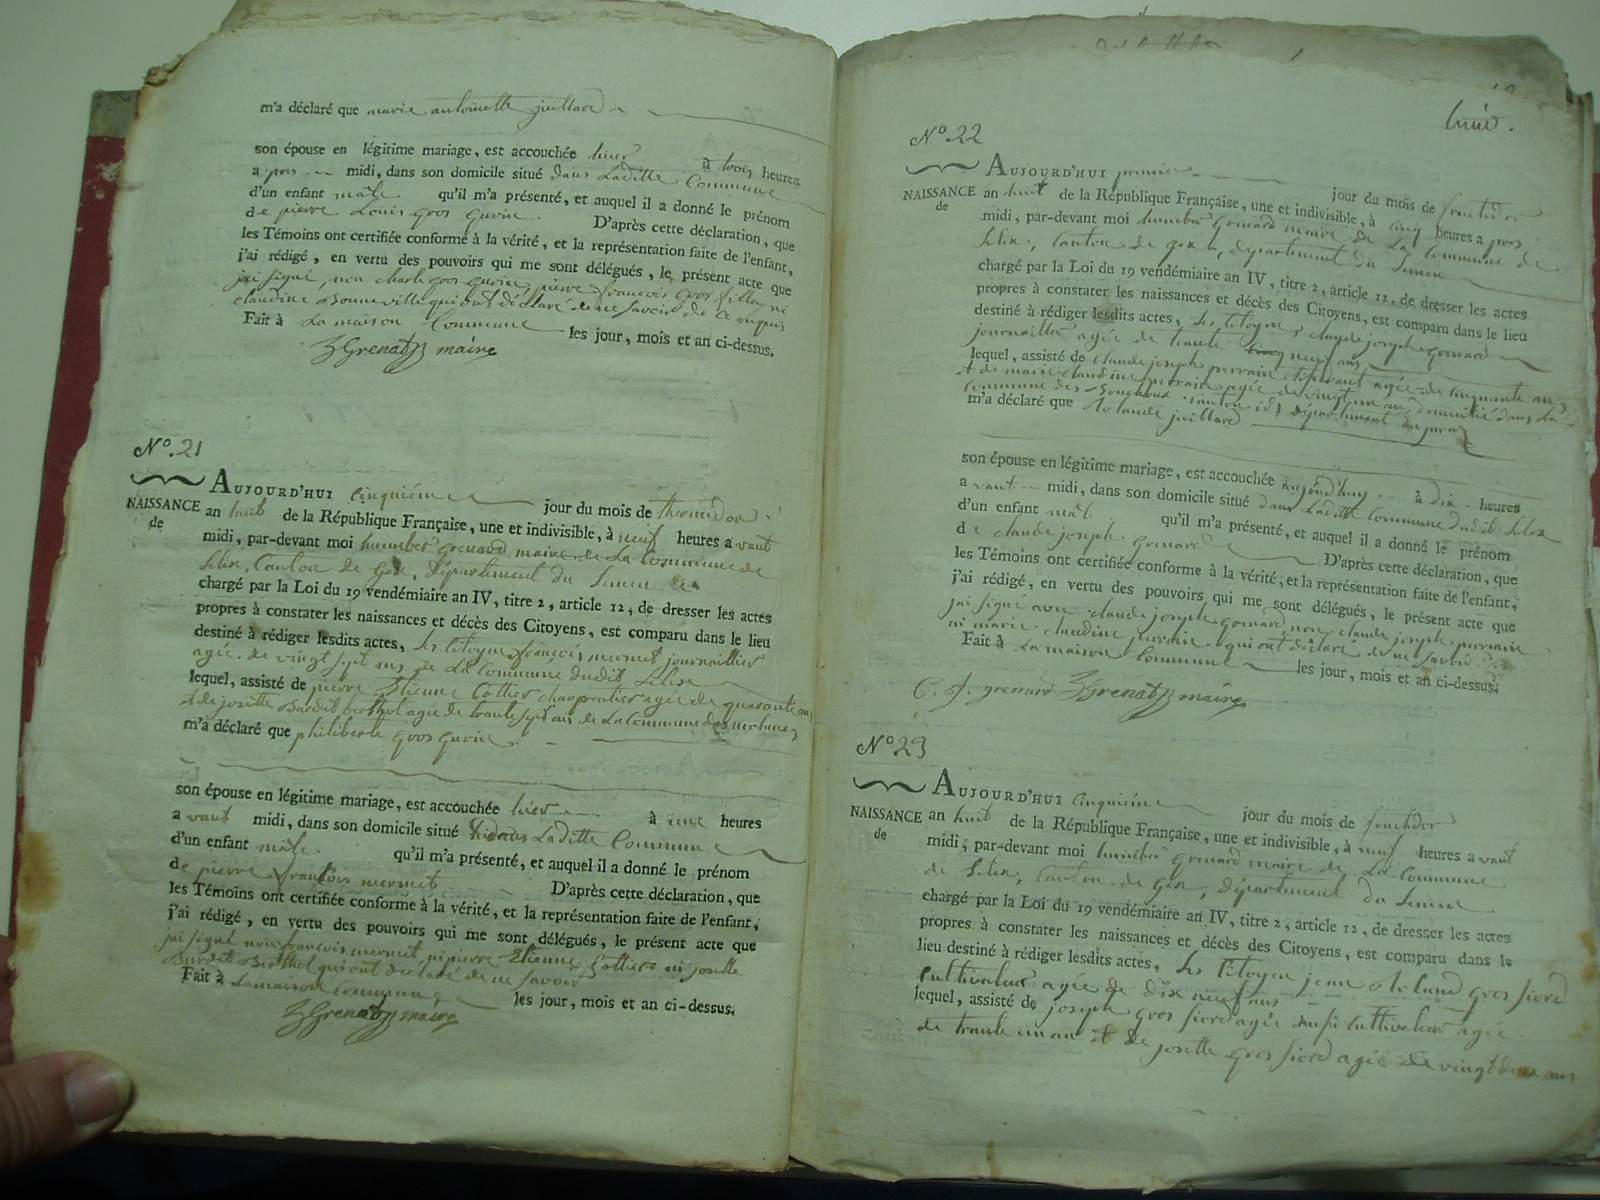 m'a déclaré que marie antoinette juillard
son épouse en légitime mariage, est accouchée hier à trois heures
a pres midi, dans son domicile situé dans Laditte Commune
d'un enfant mâle qu'il m'a présenté, et auquel il a donné le prénom
de pierre Louis gros gurin D'après cette déclaration, que
les Témoins ont certifiée conforme à la vérité, et la représentation faite de l'enfant,
j'ai rédigé, en vertu des pouvoirs qui me sont délégués, le présent acte que
jai signé, non pierre françois gros ni
claudine Bonneville qui ont déclaré de ne savoir de ce enquis
Fait à La maison Commune les jour, mois et an ci-dessus.
Grenard maire
N°. 21
AUJOURD'HUI Cinquième jour du mois de thermidor
NAISSANCE an huit de la République Française, une et indivisible, à neuf heures a vant
de
midi, par-devant moi humber grenard maire de La Commune de
Lelex, Canton de Gex, Département du Leman
chargé par la Loi du 19 vendémiaire an IV, titre 2, article 12, de dresser les actes
propres à constater les naissances et décès des Citoyens, est comparu dans le lieu
destiné à rédiger lesdits actes, Les Citoyen françois mermet journaillier
agée de vingt sept ans de La Commune dudit Lelex
lequel, assisté de pierre Etienne Cottier charpentier agée de quarante ans
et de josette Burdit berthet agée de trante sept ans de La Commune des
m'a déclaré que philiberte gros gurin
son épouse en légitime mariage, est accouchée hier à une heures
a vant midi, dans son domicile situé dans Laditte Commune
d'un enfant mâle qu'il m'a présenté, et auquel il a donné le prénom
de pierre françois mermet D'après cette déclaration, que
les Témoins ont certifiée conforme à la vérité, et la représentation faite de l'enfant,
j'ai rédigé, en vertu des pouvoirs qui me sont délégués, le présent acte que
jai signé non françois mermet ni pierre Etienne Cottier ni josette
Burdit Berthet qui ont declaré de ne savoir
Fait à La maison Commune les jour, mois et an ci-dessus.
Grenard maire
N°. 22
AUJOURD'HUI premier jour du mois de fructidor
NAISSANCE an huit de la République Française, une et indivisible, à cinq heures a pres
de
midi, par-devant moi humber grenard maire de La Commune de
Lelex, Canton de Gex, département du Leman
chargé par la Loi du 19 vendémiaire an IV, titre 2, article 12, de dresser les actes
propres à constater les naissances et décès des Citoyens, est comparu dans le lieu
destiné à rédiger lesdits actes, Les Citoyen claude joseph grenard
journaillier agée de trante neuf ans
lequel, assisté de claude joseph perrain agée de cinquante ans
et de marie claudine perrain agée de vingt un an domicilié dans La
commune des Bouchoux canton département du jura
m'a déclaré que rolande juillard
son épouse en légitime mariage, est accouchée aujourd'huy à dix heures
a vant midi, dans son domicile situé dans Laditte Commune dudit Lelex
d'un enfant mâle qu'il m'a présenté, et auquel il a donné le prénom
de claude joseph grenard D'après cette déclaration, que
les Témoins ont certifiée conforme à la vérité, et la représentation faite de l'enfant,
j'ai rédigé, en vertu des pouvoirs qui me sont délégués, le présent acte que
jai signé avec claude joseph grenard, non claude joseph perrain
ni marie claudine perrain qui ont déclaré de ne savoir
Fait à La maison Commune les jour, mois et an ci-dessus.
C. J. grenard Grenard maire
N° 23
AUJOURD'HUI Cinquième jour du mois de fructidor
NAISSANCE an huit de la République Française, une et indivisible, à neuf heures a vant
de
midi, par-devant moi humber grenard maire de La Commune
de Lelex, Canton de Gex, Département du Leman
chargé par la Loi du 19 vendémiaire an IV, titre 2, article 12, de dresser les actes
propres à constater les naissances et décès des Citoyens, est comparu dans le
lieu destiné à rédiger lesdits actes, Les Citoyen jean rolland gros fiord
cultivateur agée de dix neuf ans
lequel, assisté de joseph gros fiord agée aussi cultivateur agée
de trante un an et de josette gros fiord agée de vingt deux ans